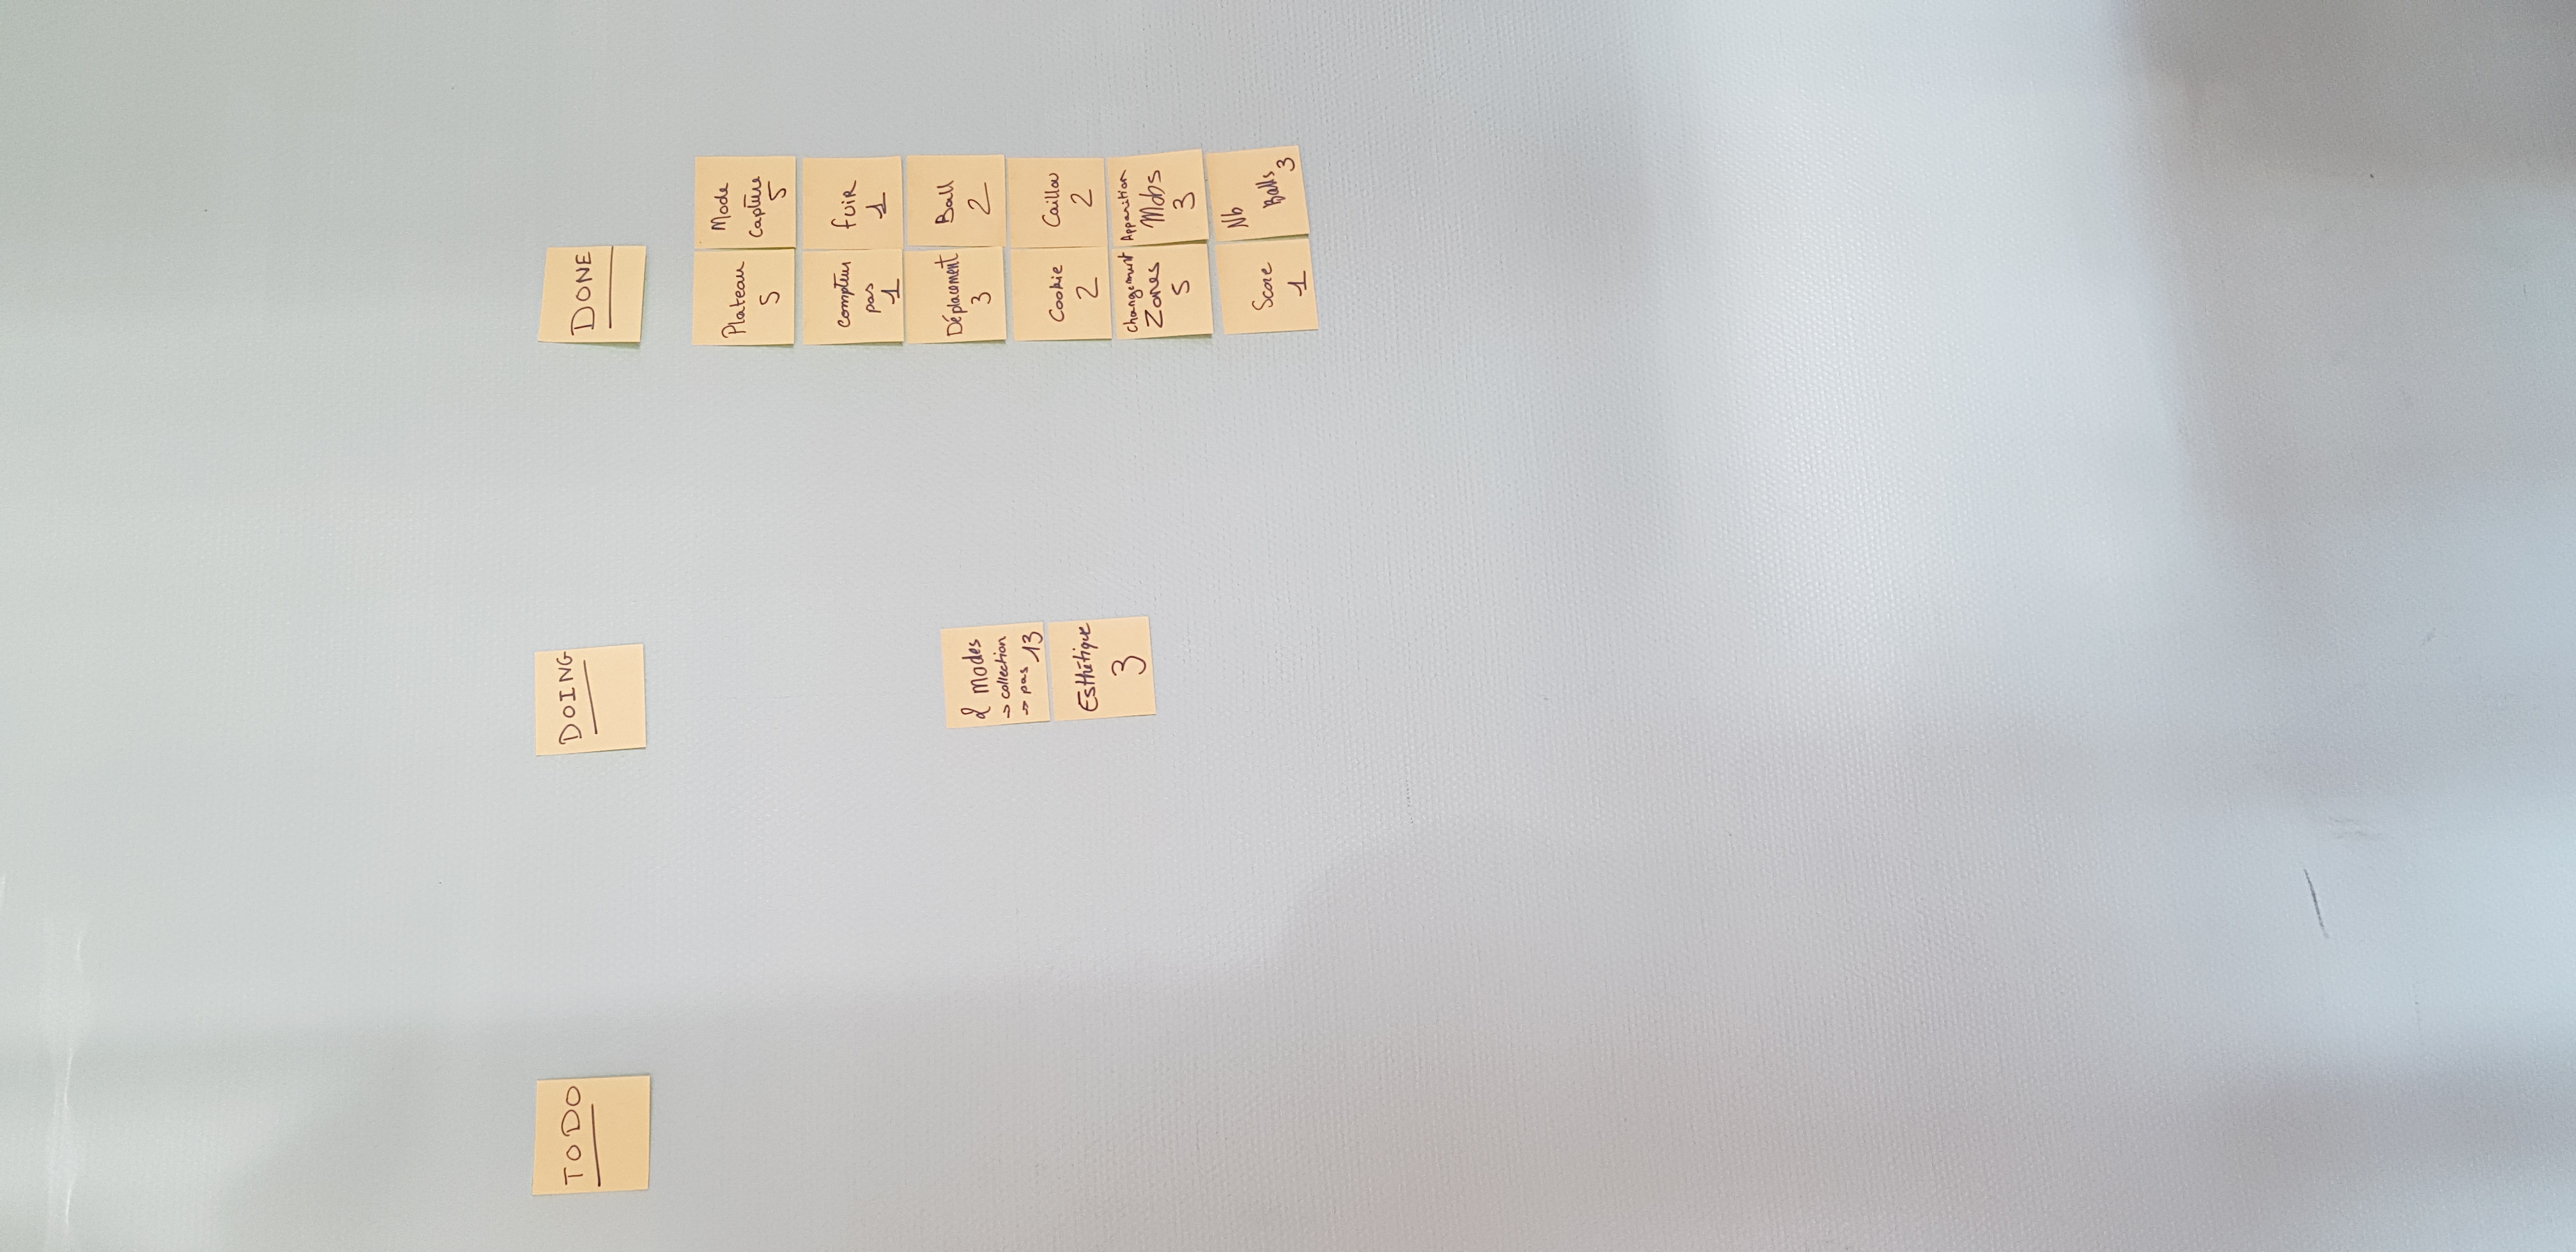 TODO
DOING
DONE
2 modes
→ collection
→ pas 13
Esthétique
3
Plateau
5
Mode
Capture
5
Compteur
pas
1
fuir
1
Déplacement
3
Ball
2
Cookie
2
Caillou
2
Changement
Zones
5
Apparition
Mobs
3
Score
1
Nb
Balls
3